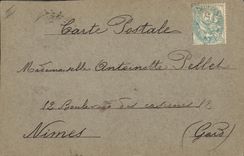 Carte Postale
Mademoiselle Antoinette Pellet
12 Boulevard des casernes 12
Nimes
(Gard)